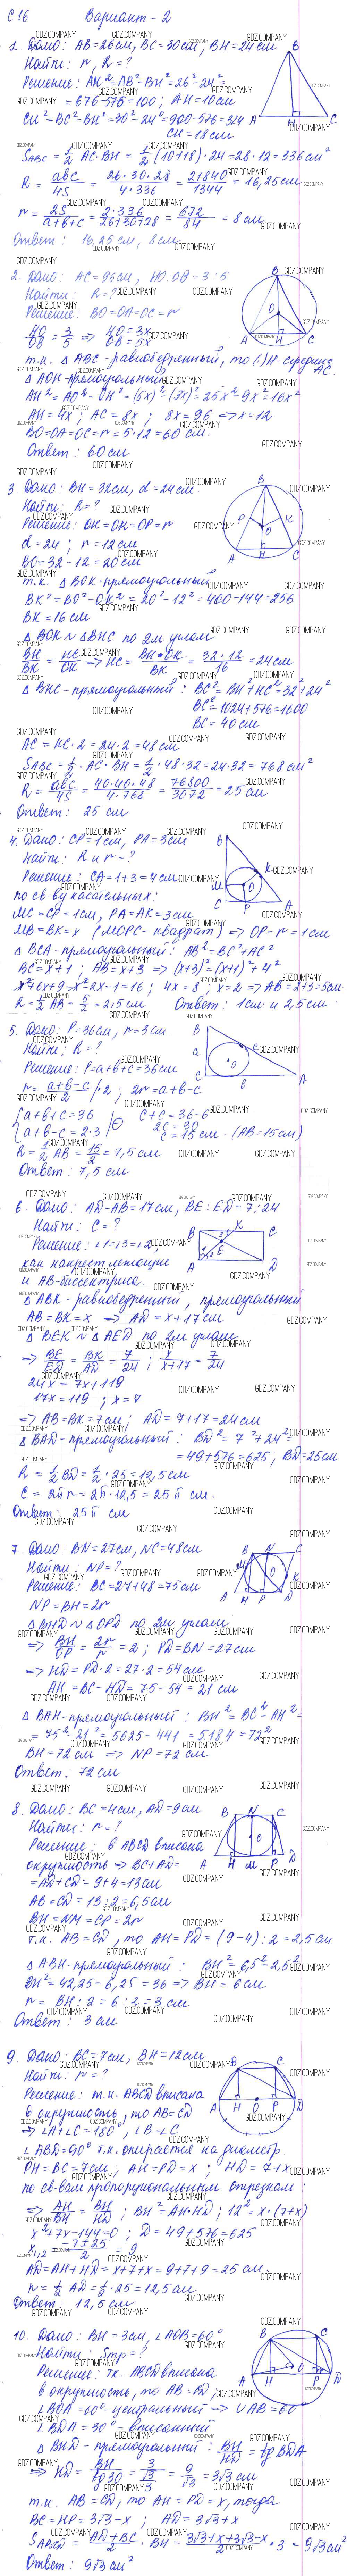 С 16 Вариант - 2
1. Дано: AB=26см, BC=30см, BH=24см
Найти: r, R=?
Решение: AH²=AB²-BH²=26²-24²=
=676-576=100; AH=10см
CH²=BC²-BH²=30²-24²=900-576=324
CH=18см
S_ABC=1/2 AC·BH=1/2(10+18)·24=28·12=336см²
R=abc/4S=26·30·28/4·336=21840/1344=16,25см
r=2S/a+b+c=2·336/26+30+28=672/84=8см
Ответ: 16,25см, 8см.
2. Дано: AC=96см, HO:OB=3:5
Найти: R=?
Решение: BO=OA=OC=r
HO/OB=3/5 ⇒ HO=3x OB=5x
т.к. △ABC-равнобедренный, то (·)H-середина AC.
△AOH-прямоугольный
AH²=AO²-OH²=(5x)²-(3x)²=25x²-9x²=16x²
AH=4x; AC=8x; 8x=96 ⇒ x=12
BO=OA=OC=r=5·12=60см.
Ответ: 60см
3. Дано: BH=32см, d=24см.
Найти: R=?
Решение: OH=OK=OP=r
d=24; r=12см
BO=32-12=20см
т.к. △BOK-прямоугольный
BK²=BO²-OK²=20²-12²=400-144=256
BK=16см
△BOK∾△BHC по 2м углам
BH/BK=HC/OK ⇒ HC=BH*OK/BK=32·12/16=24см
△BHC-прямоугольный: BC²=BH²+HC²=32²+24²
BC²=1024+576=1600
BC=40см
AC=HC·2=24·2=48см
S_ABC=1/2·AC·BH=1/2·48·32=24·32=768см²
R=abc/4S=40·40·48/4·768=76800/3072=25см
Ответ: 25см
4. Дано: CP=1см, PA=3см
Найти: R и r=?
Решение: CA=1+3=4см
по св-ву касательных:
MC=CP=1см, PA=AK=3см
MB=BK=x (MOPC-квадрат) ⇒ OP=r=1см
△BCA-прямоугольный: AB²=BC²+AC²
BC=x+1; AB=x+3 ⇒ (x+3)²=(x+1)²+4²
x²+6x+9-x²-2x-1=16; 4x=8; x=2 ⇒ AB=2+3=5см
R=1/2AB=5/2=2,5см Ответ: 1см и 2,5см.
5. Дано: P=36см, r=3см.
Найти: R=?
Решение: P=a+b+c=36см
r=a+b-c/2 |·2; 2r=a+b-c
{a+b+c=36 c+c=36-6
{a+b-c=2·3 |⊖ 2c=30
c=15см (AB=15см)
R=1/2AB=15/2=7,5см
Ответ: 7,5см
6. Дано: AD-AB=17см, BE:ED=7:24
Найти: C=?
Решение: ∠1=∠3=∠2,
как накрест лежащие
и AB-биссектриса.
△ABK-равнобедренный, прямоугольный
AB=BK=x ⇒ AD=x+17см
△BEK∾△AED по 2м углам
⇒ BE/ED=BK/AD=7/24; x/x+17=7/24
24x=7x+119
17x=119; x=7
⇒ AB=BK=7см; AD=7+17=24см
△BAD-прямоугольный: BD²=7²+24²=
=49+576=625; BD=25см
R=1/2BD=1/2·25=12,5см
C=2πr=2π·12,5=25π см.
Ответ: 25π см
7. Дано: BN=27см, NC=48см
Найти: NP=?
Решение: BC=27+48=75см
NP=BH=2r
△BHD∾△OPD по 2м углам
⇒ BH/OP=2r/r=2; PD=BN=27см
⇒ HD=PD·2=27·2=54см
AH=BC-HD=75-54=21см
△BAH-прямоугольный: BH²=BC²-AH²=
=75²-21²=5625-441=5184=72²
BH=72см ⇒ NP=72см
Ответ: 72см
8. Дано: BC=4см, AD=9см
Найти: r=?
Решение: в ABCD вписана
окружность ⇒ BC+AD=
=AB+CD=9+4=13см
AB=CD=13:2=6,5см
BH=NM=CP=2r
т.к. AB=CD, то AH=PD=(9-4):2=2,5см
△ABH-прямоугольный: BH²=6,5²-2,5²
BH²=42,25-6,25=36 ⇒ BH=6см
r=BH:2=6:2=3см
Ответ: 3см
9. Дано: BC=7см, BH=12см
Найти: r=?
Решение: т.к. ABCD вписана
в окружность, то AB=CD
⇒ ∠A+∠C=180°, ∠B=∠C
∠ABD=90° т.к. опирается на диаметр
PH=BC=7см; AH=PD=x; HD=7+x
по св-вам пропорциональным отрезкам:
⇒ AH/BH=BH/HD; BH²=AH·HD; 12²=x·(7+x)
x²+7x-144=0; D=49+576=625
x₁,₂=-7±25/2=9
AD=AH+HD=x+7+x=9+7+9=25см.
r=1/2AD=1/2·25=12,5см
Ответ: 12,5см
10. Дано: BH=3см, ∠AOB=60°
Найти: Sтр=?
Решение: т.к. ABCD вписана
в окружность, то AB=CD,
∠BOA=60°-центральный ⇒ ∪AB=60°
∠BDA=30°-вписанный
△BHD-прямоугольный: BH/HD=tg BDA
⇒ HD=BH/tg30=3/√3/3=9/√3=3√3см
т.к. AB=CD, то AH=PD=x, тогда
BC=HP=3√3-x; AD=3√3+x
S_ABCD=AD+BC/2·BH=3√3+x+3√3-x/2·3=9√3см²
Ответ: 9√3см²